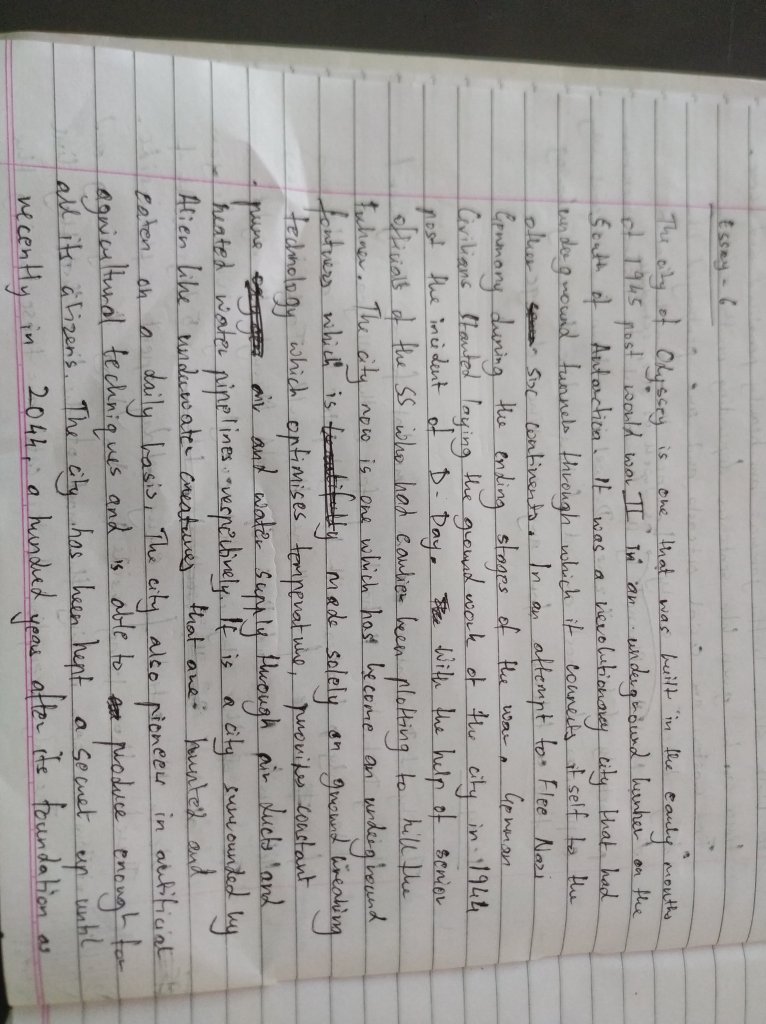 Essay - 6
The city of Odyssey is one that was built in the early months
of 1945 post world war II in an underground bunker on the
South of Antarctica. It was a revolutionary city that had
underground tunnels through which it connects itself to the
other six continents. In an attempt to Flee Nazi
Germany during the ending stages of the war. German
Civilians started laying the ground work of the city in 1944
post the incident of D-Day. With the help of senior
officials of the SS who had earlier been plotting to kill the
fuhrer. The city now is one which has become an underground
fortress which is made solely on ground breaking
technology which optimises temperature, provides constant
pure air and water supply through air ducts and
heated water pipelines respectively. It is a city surrounded by
Alien like underwater creatures that are hunted and
eaten on a daily basis. The city also pioneer in artificial
agricultural techniques and is able to produce enough for
all its citizens. The city has been kept a secret up until
recently in 2044, a hundred years after its foundation as